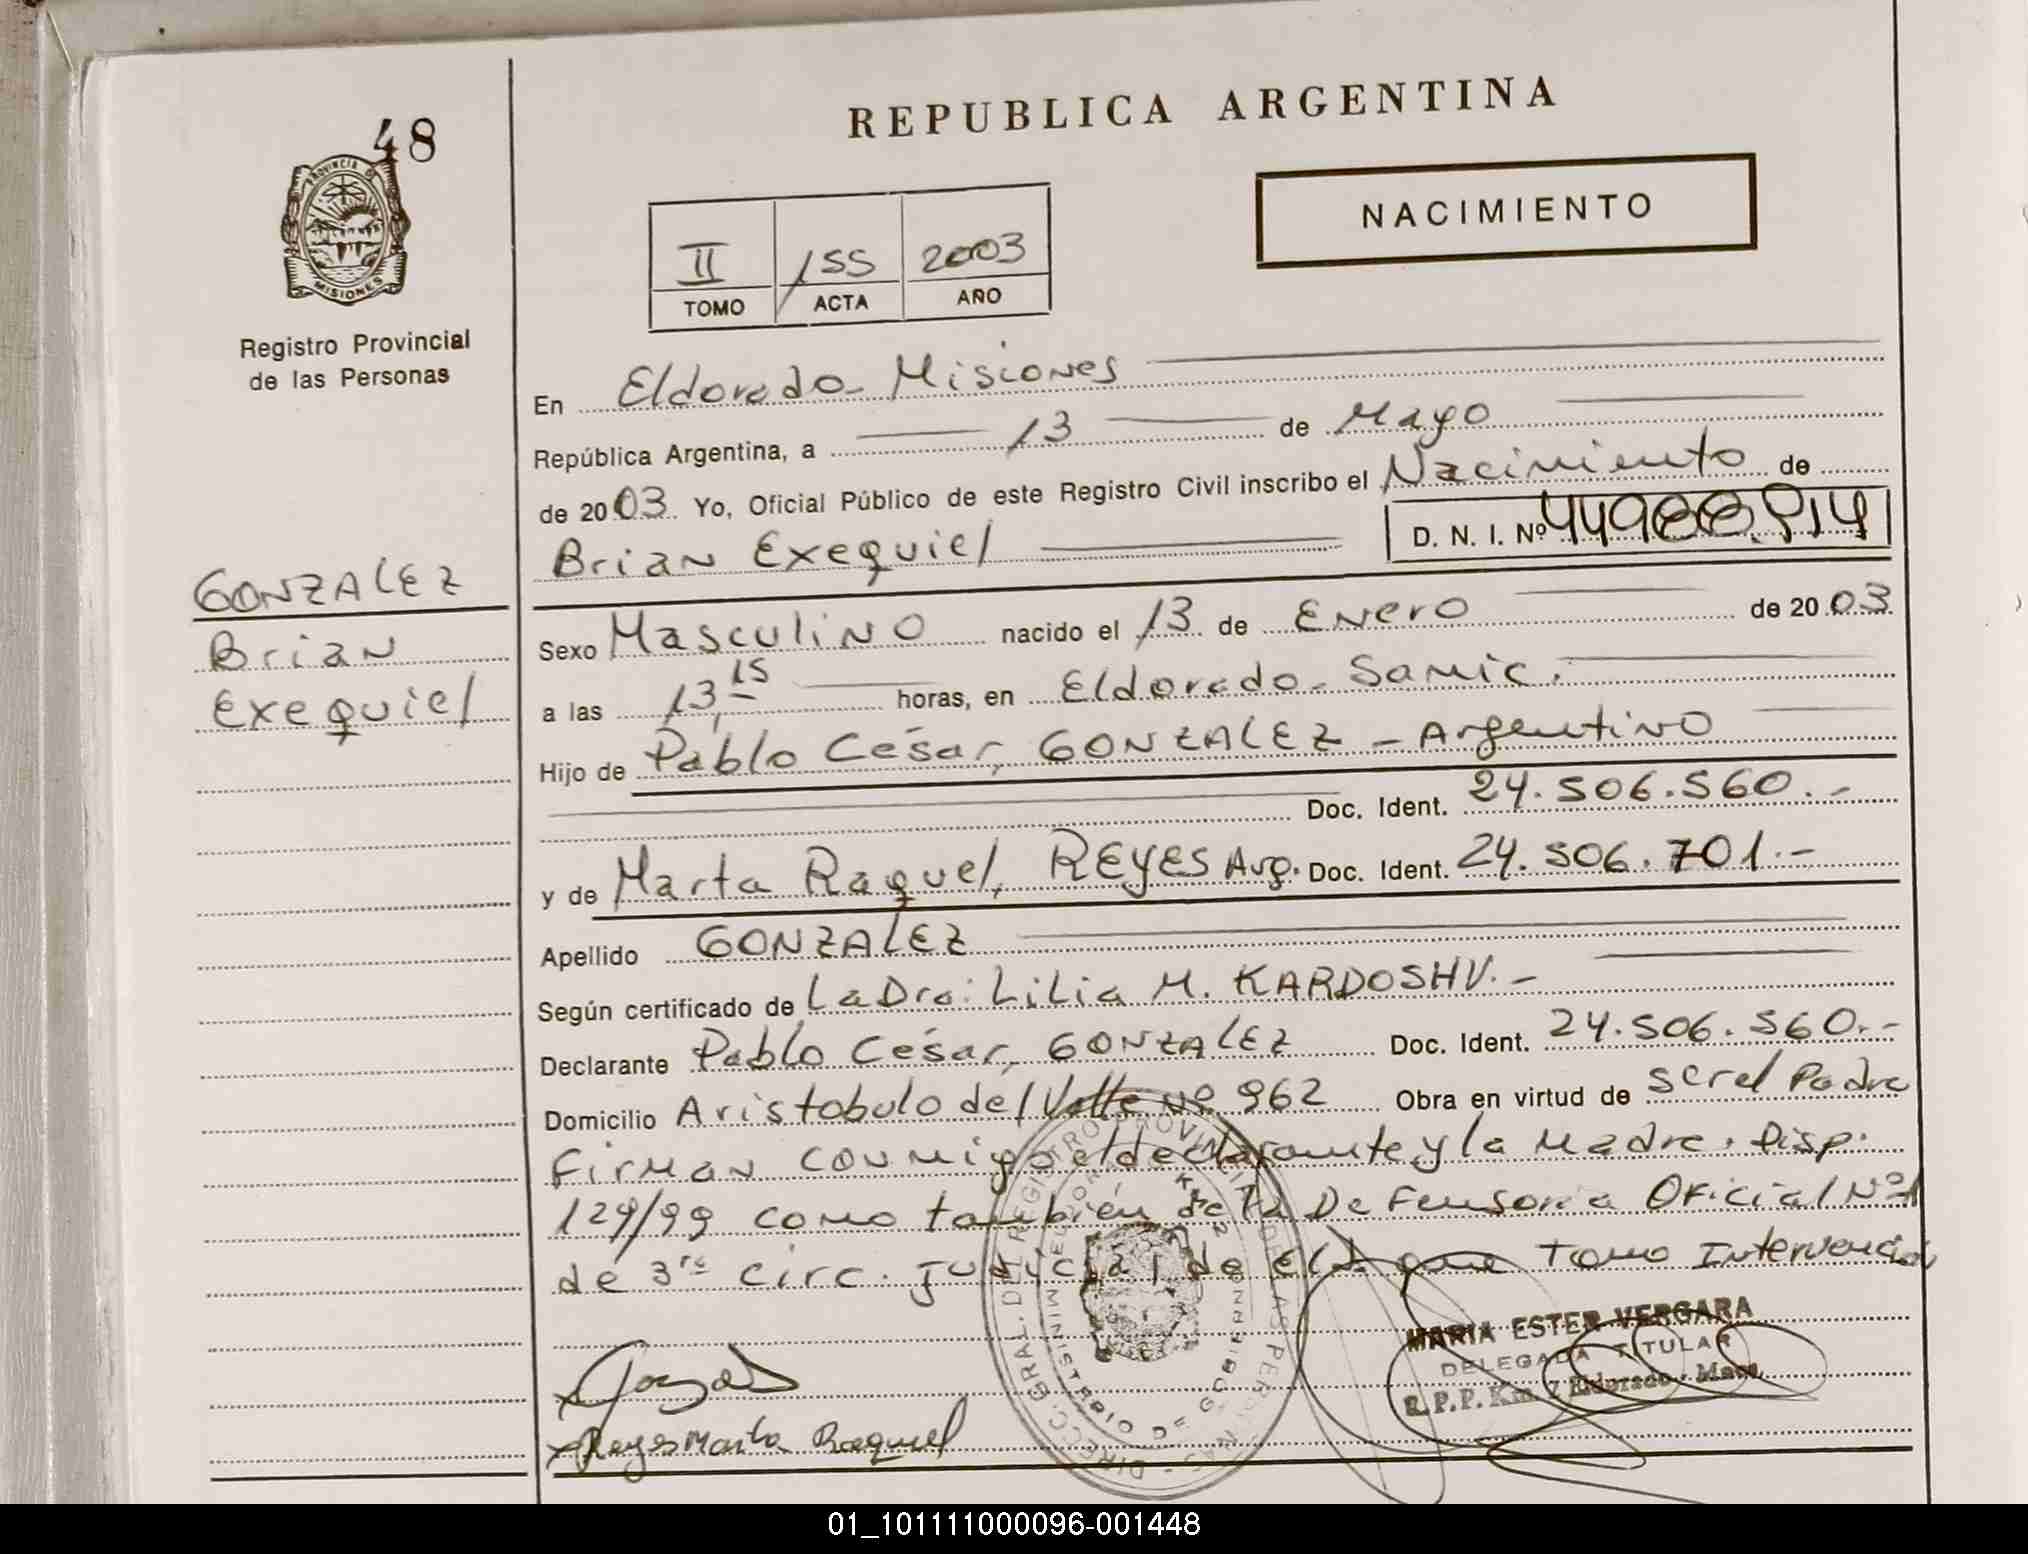 48
PROVINCIA DE
MISIONES
Registro Provincial
de las Personas
GONZALEZ
Brian
Exequiel
REPUBLICA ARGENTINA
NACIMIENTO
II 155 2003
TOMO ACTA AÑO
En Eldorado - Misiones
República Argentina, a 13 de Mayo
de 2003. Yo, Oficial Público de este Registro Civil inscribo el Nacimiento de
D. N. I. Nº 44900.914
Brian Exequiel
Sexo Masculino nacido el 13 de Enero de 2003
a las 13,15 horas, en Eldorado - Samic.
Hijo de Pablo César, GONZALEZ - Argentino
Doc. Ident. 24.506.560.-
y de Marta Raquel, REYES Arg. Doc. Ident. 24.506.701.-
Apellido GONZALEZ
Según certificado de La Dra: Lilia M. KARDOSHV.-
Declarante Pablo César, GONZALEZ Doc. Ident. 24.506.560.-
Domicilio Aristobulo del Valle Nº 962 Obra en virtud de ser el Padre
Firman conmigo el declarante y la Madre. Disp.
129/99 como también de la Defensoria Oficial Nº1
de 3ra circ. judicial de Eld. que Tomo Intervencion
MARIA ESTER VERGARA
DELEGADA TITULAR
R.P.P. Km. 7 Eldorado - Mnes.
Reyes Marta Raquel
01_101111000096-001448